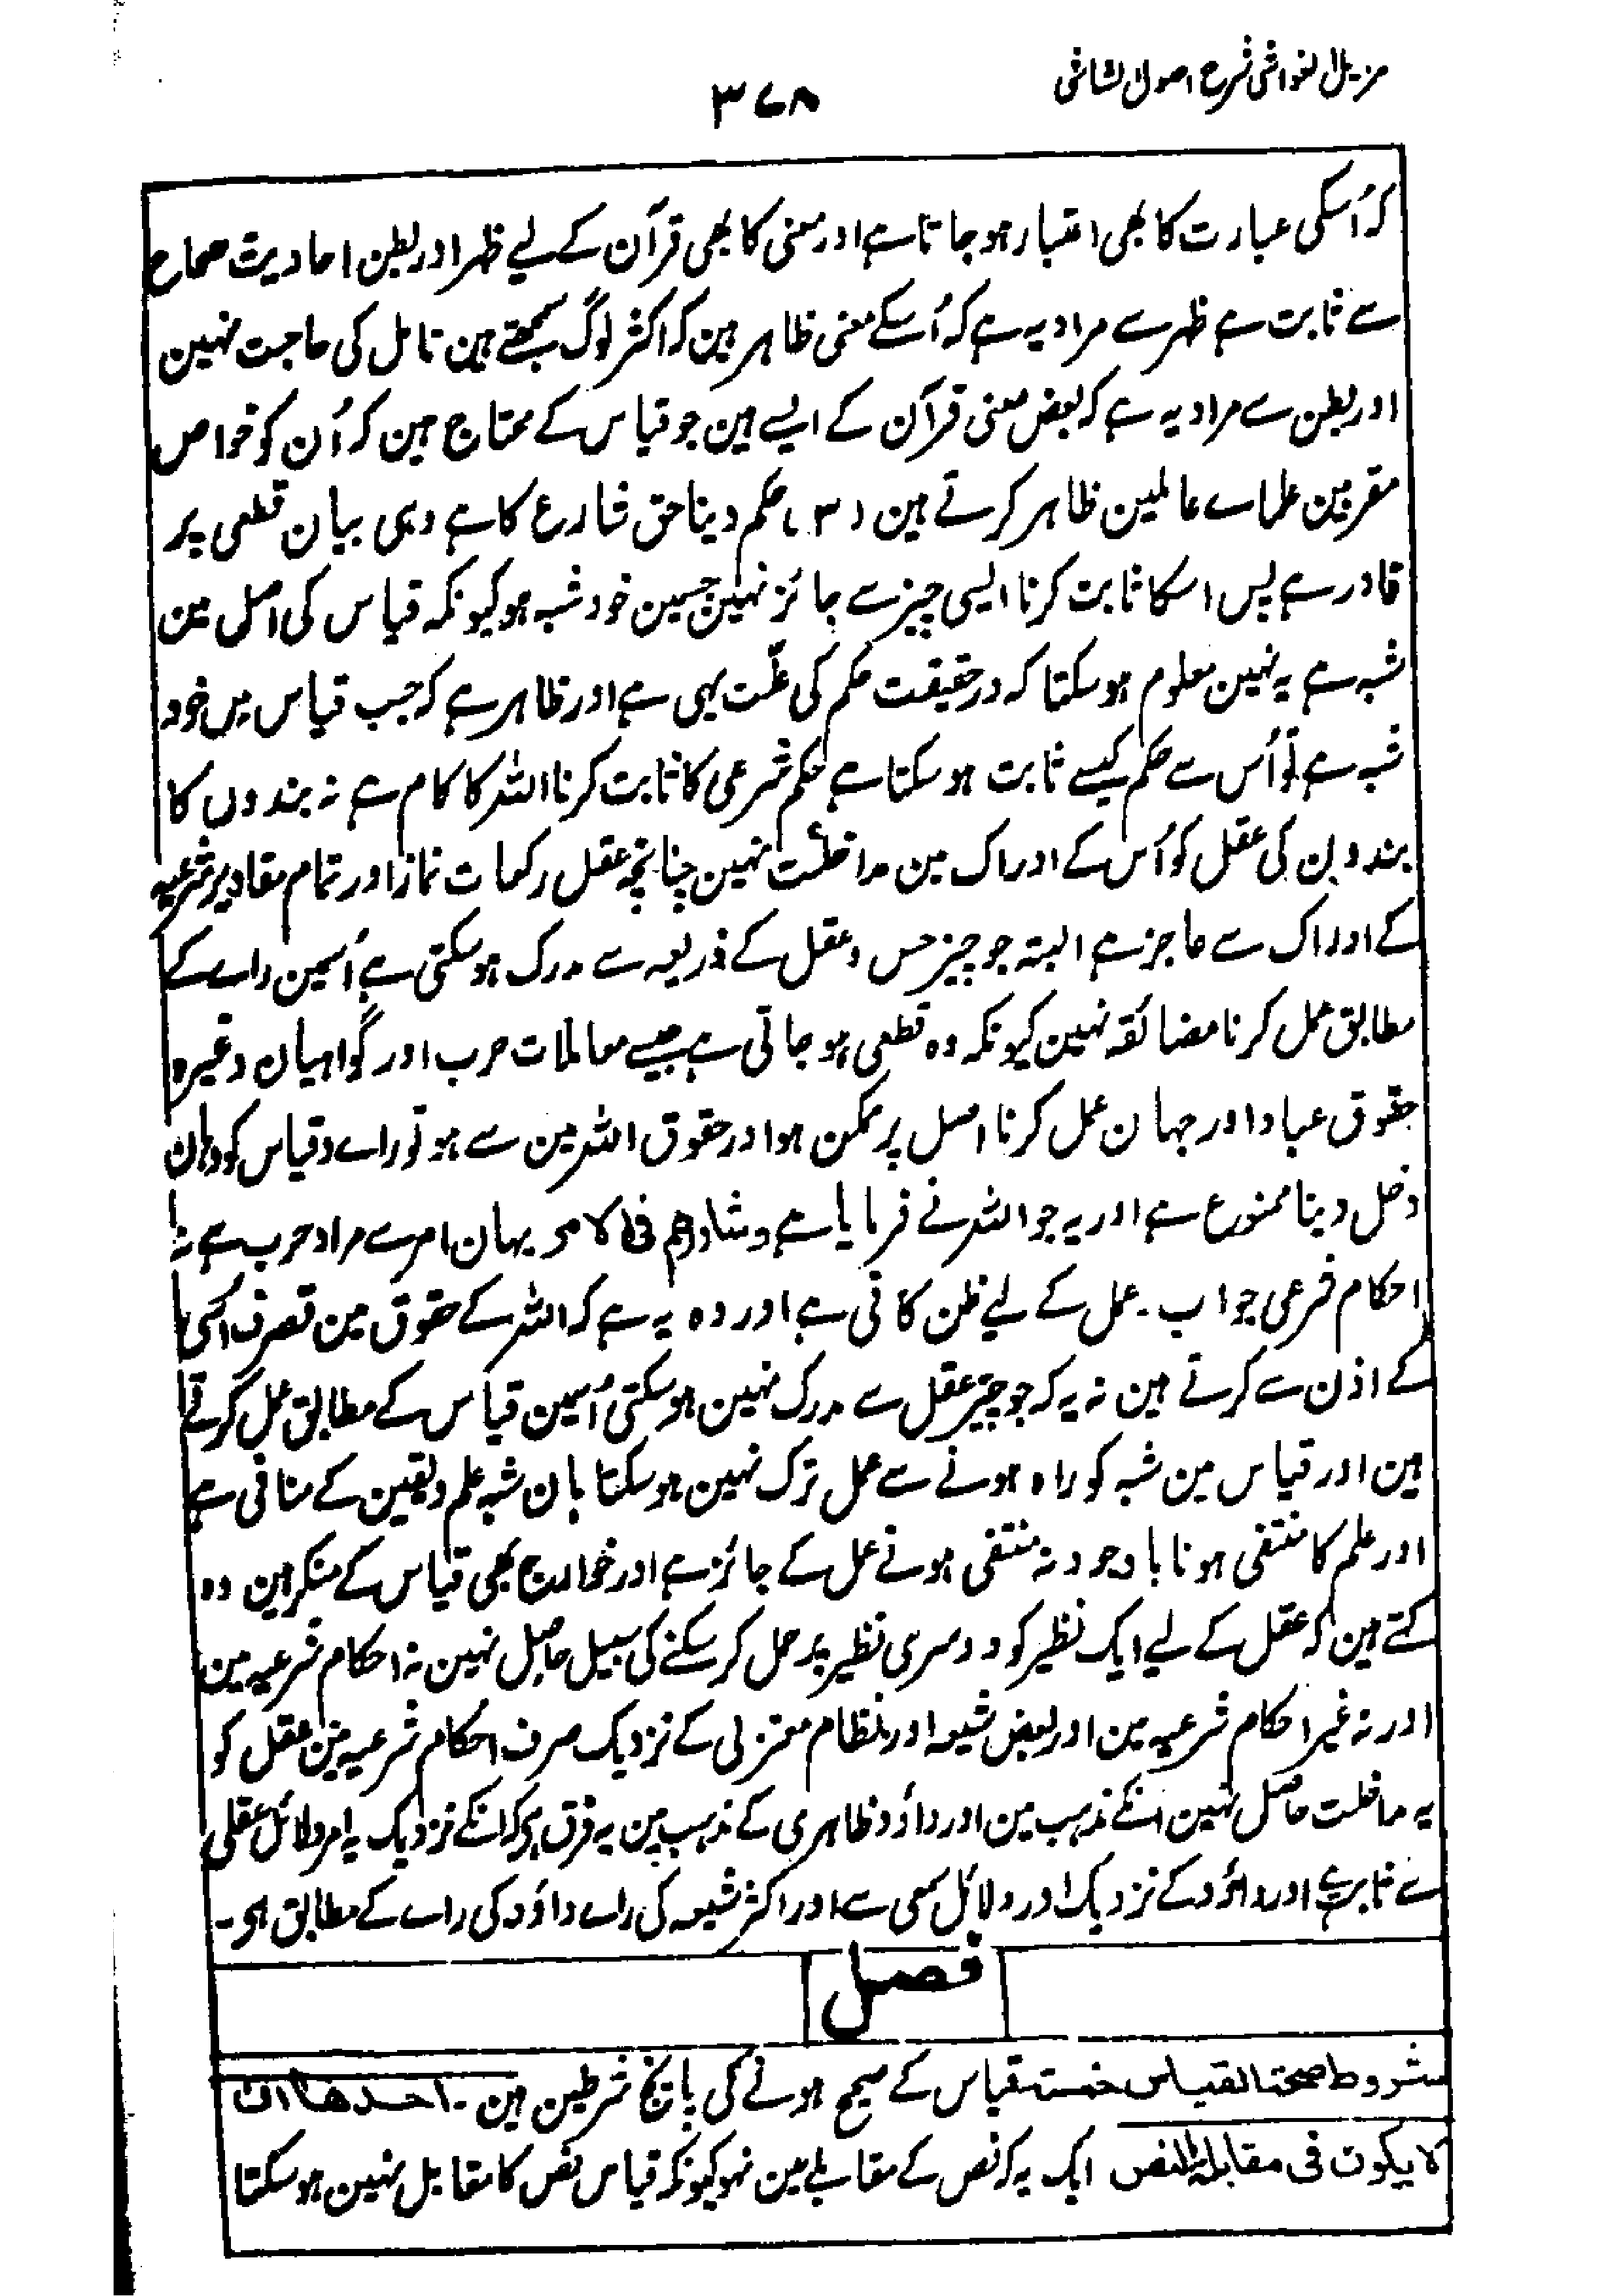 مزیل الغواشی شرح اصول الشاشی
۳۷۸
کہ اُسکی عبارت کا بھی اعتبار ہو جاتا ہے اور معنی کا بھی قرآن کے لیے ظہر اور بطن احادیث صحاح
سے ثابت ہے ظہر سے مراد یہ ہے کہ اُسکے معنی ظاہر ہین کہ اکثر لوگ سمجھتے ہین تامل کی حاجت نہین
اور بطن سے مراد یہ ہے کہ بعض معنی قرآن کے ایسے ہین جو قیاس کے محتاج ہین کہ اُن کو خواص
مقربین علماے عالمین ظاہر کرتے ہین (۳) حکم دینا حق شارع کا ہے وہی بیان قطعی پر
قادر ہے پس اسکا ثابت کرنا ایسی چیز سے جائز نہین جسین خود شبہ ہو کیونکہ قیاس کی اصل مین
شبہ ہے یہ نہین معلوم ہو سکتا کہ در حقیقت حکم کی علّت یہی ہے اور ظاہر ہے کہ جب قیاس میں خود
شبہ ہے تو اُس سے حکم کیسے ثابت ہو سکتا ہے حکم شرعی کا ثابت کرنا اللہ کا کام ہے نہ بندوں کا
بندون کی عقل کو اُس کے ادراک مین مداخلت نہین چنانچہ عقل رکعات نماز اور تمام مقادیر شرعیہ
کے ادراک سے عاجز ہے البتہ جو چیز حس و عقل کے ذریعہ سے مدرک ہو سکتی ہے اُسمین راے کے
مطابق عمل کرنا مضائقہ نہین کیونکہ وہ قطعی ہو جاتی ہے جیسے معاملات حرب اور گواہیان وغیرہ
حقوق عباد اور جہان عمل کرنا اصل پر ممکن ہو اور حقوق اللہ مین سے ہو تو راے و قیاس کو وہان
دخل دینا ممنوع ہے اور یہ جو اللہ نے فرمایا ہے وشاورھم فی الامر یہان امر سے مراد حرب ہے نہ
احکام شرعی جواب ۔ عمل کے لیے ظن کافی ہے اور وہ یہ ہے کہ اللہ کے حقوق مین تصرف اسی
کے اذن سے کرتے ہین نہ یہ کہ جو چیز عقل سے مدرک نہین ہو سکتی اُسین قیاس کے مطابق عمل کرتے
ہین اور قیاس مین شبہ کو راہ ہونے سے عمل ترک نہین ہو سکتا ہان شبہ علم و یقین کے منافی ہے
اور علم کا منتفی ہونا باوجود نہ منتفی ہونے عمل کے جائز ہے اور خوارج بھی قیاس کے منکر ہین وہ
کہتے ہین کہ عقل کے لیے ایک نظیر کو دوسری نظیر پر حمل کر سکنے کی سبیل حاصل نہین نہ احکام شرعیہ مین
اور نہ غیر احکام شرعیہ مین اور بعض شیعہ اور نظام معتزلی کے نزدیک صرف احکام شرعیہ مین عقل کو
یہ مداخلت حاصل نہین انکے مذہب مین اور داؤد ظاہری کے مذہب مین یہ فرق ہو کہ انکے نزدیک یہ امر دلائل عقلی
سے ثابت ہے اور داؤد کے نزدیک اور دلائل سمعی سے اور اکثر شیعہ کی راے داؤد کی راے کے مطابق ہی۔
فصل
شروط صحۃ القیاس خمسۃ قیاس کے صحیح ہونے کی پانچ شرطین ہین ۔ احدھا ان
لا یکون فی مقابلۃ النص ایک یہ کہ نص کے مقابلے مین نہو کیونکہ قیاس نص کا مقابل نہین ہو سکتا